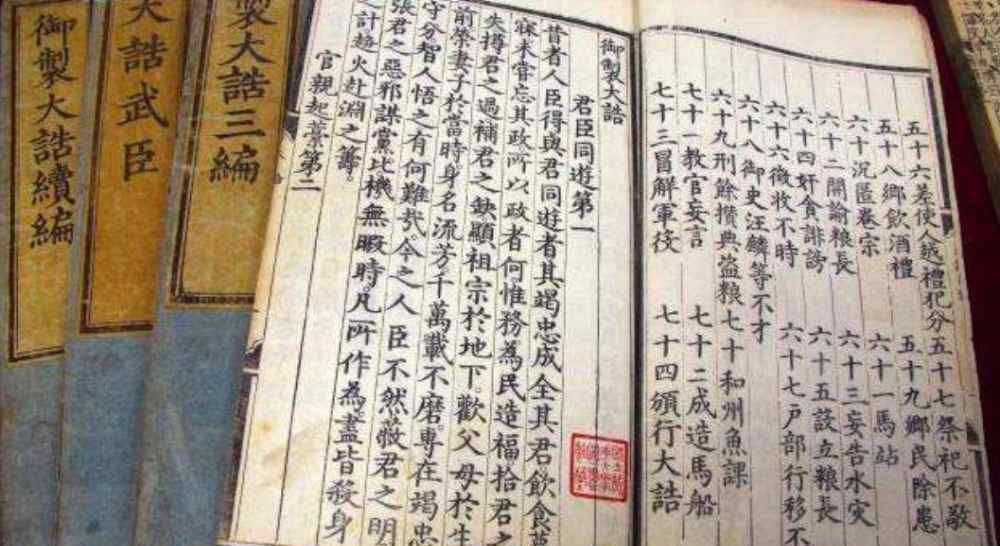 五十六差使人越禮犯分五十七祭祀不敬
五十八鄉飲酒禮 五十九鄉民除患
六十沉匿卷宗 六十一馬站
六十二開諭粮長 六十三妄告水災
六十四奸貪誹謗 六十五設立粮長
六十六徵收不時 六十七戶部行移不
六十八御史汪麟等不才
六十九刑餘攢典盜粮七十和州魚課
七十一教官妄言 七十二成造馬船
七十三冒解軍役 七十四頒行大誥
御製大誥
君臣同遊第一
昔者人臣得與君同遊者其竭忠成全其君飲食夢
寐未嘗忘其政所以政者何惟務為民造福拾君之
失撙君之過補君之缺顯祖宗於地下歡父母於生
前榮妻子於當時身名流芳千萬載不磨專在竭忠
守分智人悟之有何難哉今之人臣不然蔽君之明
張君之惡邪謀黨比機無暇時凡所作為盡皆殺身
之計趨火赴淵之籌
官親起藁第二
製大誥三編
大誥武臣
御製大誥續編